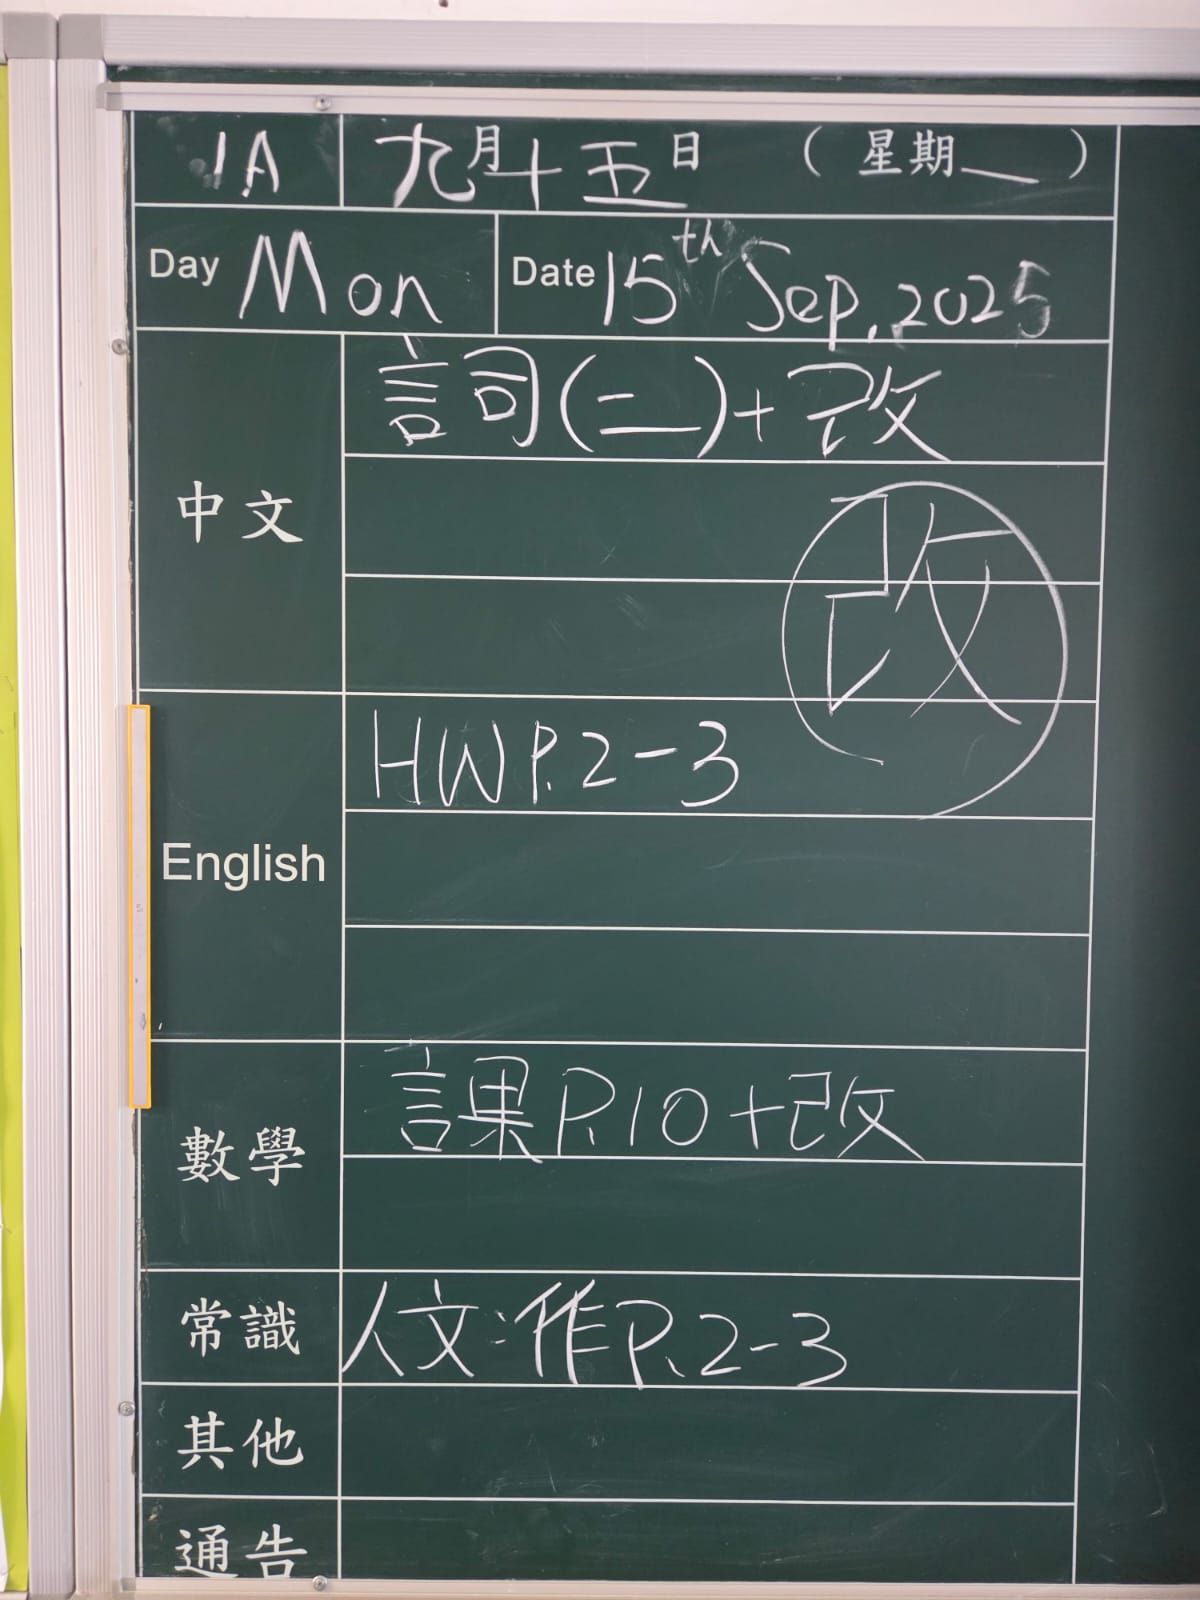 1A 九月十五日 (星期一)
Day Mon Date 15th Sep, 2025
中文 詞(二)+改
改
English HW P.2-3
數學 課P.10+改
常識 人文:作P.2-3
其他
通告